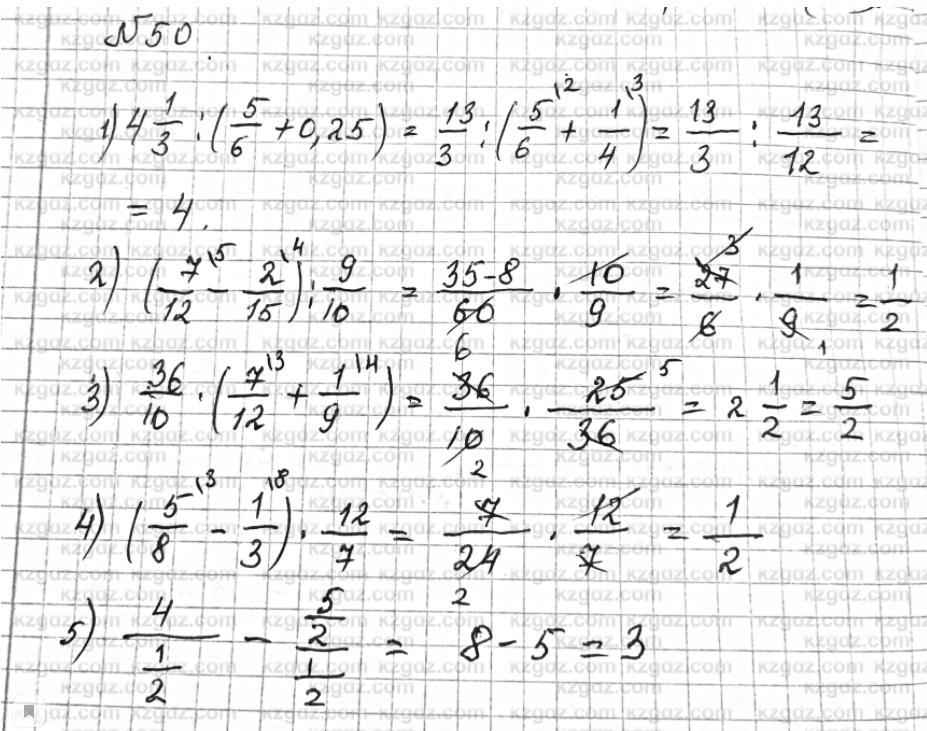 №50
1) 4 1/3 : (5/6 + 0,25) = 13/3 : (5\2/6 + 1\3/4) = 13/3 : 13/12 =
= 4.
2) (7\5/12 - 2\4/15) : 9/10 = 35-8/60 · 10/9 = 27/6 · 1/9 = 1/2
3) 36/10 · (7\3/12 + 1\4/9) = 36/10 · 25/36 = 2 1/2 = 5/2
4) (5\3/8 - 1\8/3) · 12/7 = 7/24 · 12/7 = 1/2
5) 4/(1/2) - (5/2)/(1/2) = 8 - 5 = 3
kzgaz.com